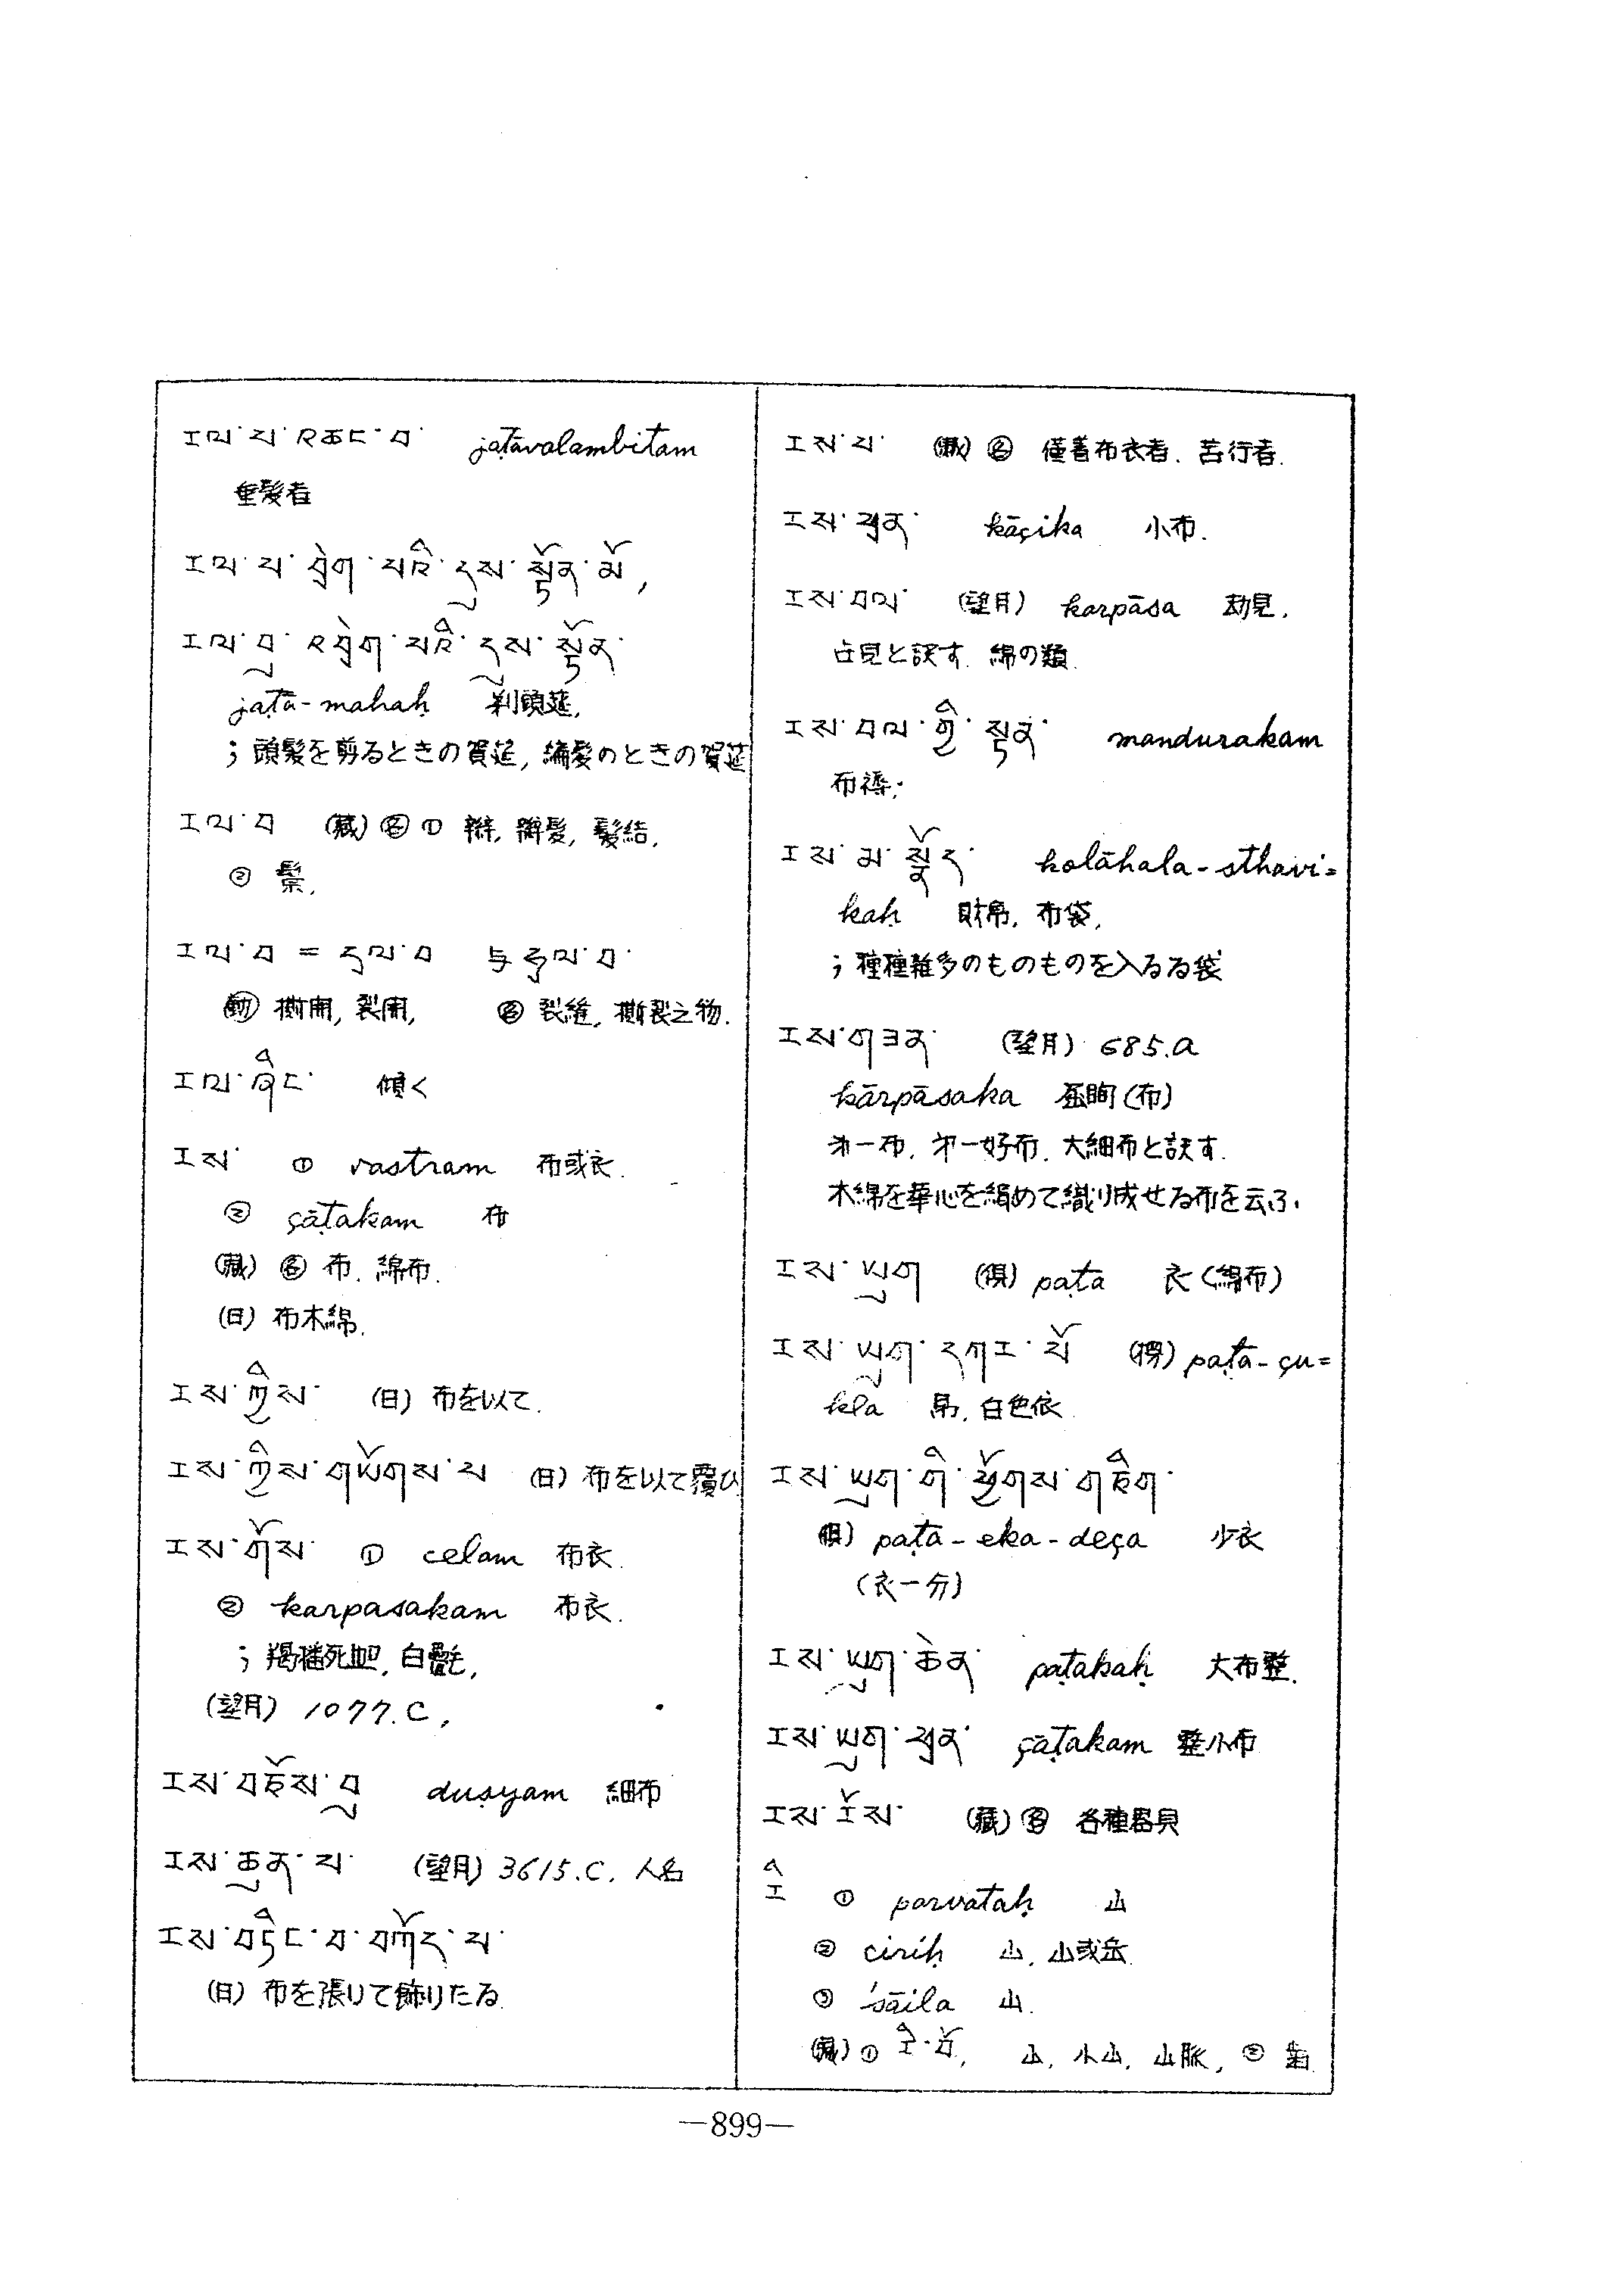 རལ་པ་འཆང་བ་ jaṭāvalambitam
重髪者
རལ་པ་བྲེག་པའི་དུས་སྟོན་མོ,
རལ་བུ་འབྲེག་པའི་དུས་སྟོན་
jaṭā-mahaḥ 剃頭莚,
; 頭髪を剪るときの賀莚, 編髪のときの賀莚
རལ་བ (藏) 名 ① 辮, 辮髪, 髪結,
② 鬃,
རལ་བ = དྲལ་བ 与 རྡལ་བ་
動 撕開, 裂開, 名 裂縫, 撕裂之物.
རལ་ཤིང་ 傾く
རས་ ① vastram 布或衣.
② çāṭakam 布
(藏) 名 布, 綿布.
(日) 布木綿.
རས་ཀྱིས་ (日) 布を以て.
རས་ཀྱིས་གཡོགས་པ (日) 布を以て覆ひ
རས་གོས་ ① celam 布衣.
② karpasakam 布衣.
; 羯播死, 白氎,
(望月) 1077.C,
རས་བཅོས་བུ duṣyam 細布
རས་ཆུན་པ་ (望月) 3615.C, 人名
རས་བཏིང་བ་བཀོད་པ་
(日) 布を張りて飾りたる
རས་པ་ (藏) 名 僅着布衣者, 苦行者.
རས་ཕྲན་ kāçika 小布.
རས་བལ་ (望月) karpāsa 劫見,
占見と訳す. 綿の類.
རས་བལ་གྱི་སྟན་ mandurakam
布褥;
རས་མ་སྣོད་ kolāhala-sthavi=
kaḥ 財帛, 布袋,
; 種種雑多のものものを入るる袋
རས་གཟན་ (望月) 685.a
kārpāsaka (布)
第一布, 第一好布, 大細布と訳す.
木綿を華心を絹めて織り成せる布を云ふ.
རས་ཡུག (倶) paṭa 衣 (綿布)
རས་ཡུག་དཀར་པོ (楞) paṭa-çu=
kla 帛, 白色依
རས་ཡུག་གི་ཕྱོགས་གཅིག་
(倶) paṭa-eka-deça 少衣
(衣一分)
རས་ཡུག་ཆེན་ paṭakaḥ 大布整.
རས་ཡུག་ཕྲན་ çāṭakam 整小布
རས་རོས་ (藏) 名 各種器具
རི ① parvataḥ 山
② ciriḥ 山, 山或岳.
③ śaila 山.
(藏) ① རི་བོ, 山, 小山, 山脈, ② 畫.
—899—